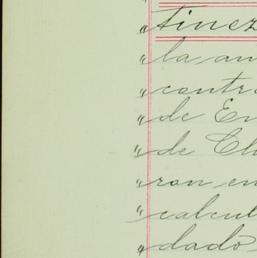 "tinez
"la an
"contra
"de En
"de Ch
"ron en
"calcul
"dado